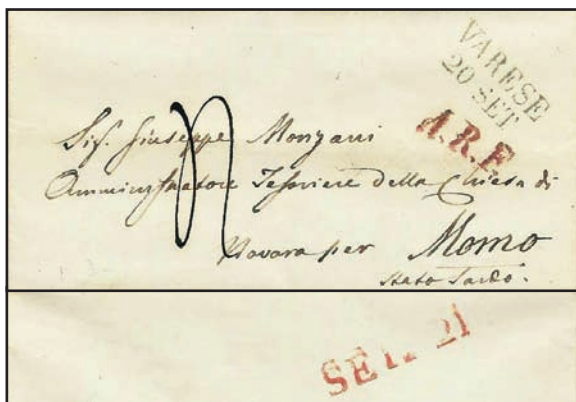 VARESE
20 SET
A.R.F
Sig. Giuseppe Monzani
Amministratore Tesoriere della Chiesa di
Novara per Momo
Stato Sardo.
SET. 21